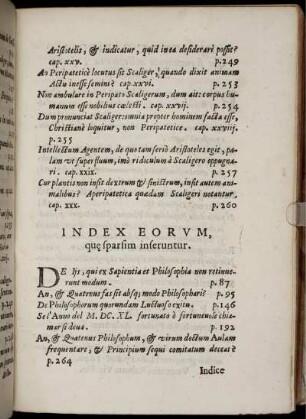 Aristotelis, & iudicatur, quid in ea desiderari possit?
cap. xxv. p.249
An Peripatetice locutus sit Scaliger, quando dixit animam
Actu inesse semini? cap. xxvi. p.253
Non ambulare in Peripato Scaligerum, dum ait: corpus humanum
esse nobilius cœlesti. cap. xxvij. p.254
Dum pronunciat Scaliger: omnia propter hominem facta esse,
Christianè loquitur, non Peripatetice. cap. xxviij.
p.255
Intellectum Agentem, de quo tam seriò Aristoteles egit, palam
vt superfluum, imò ridiculum à Scaligero oppugnari.
cap. xxix. p.257
Cur plantis non insit dextrum & sinistrum, insit autem animalibus?
Aperipatetica quædam Scaligeri notantur,
cap. xxx. p.260
INDEX EORVM,
quę sparsim inseruntur.
DE Iis, qui ex Sapientia et Philosophia non retinuerunt
modum. p.87
An, & Quatenus fas sit absq; modo Philosophari? p.95
De Philosophorum quorundam Luctuoso exitu. p.146
Se l'Anno del M. DC. XL. fortunato ò fortuneuole chiamar
si deua. p.192
An, & Quatenus Philosophum, & virum doctum Aulam
frequentare, & Principum sequi comitatum deceat?
p.264
Indice